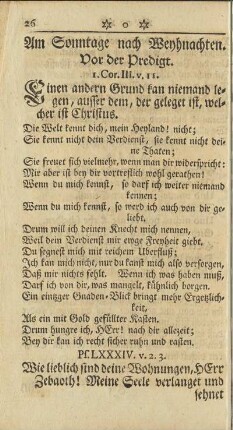 26 ✻ o ✻
Am Sonntage nach Weyhnachten.
Vor der Predigt.
1. Cor. III. v. 11.
Einen andern Grund kan niemand le-
gen, ausser dem, der geleget ist, wel-
cher ist Christus.
Die Welt kennt dich, mein Heyland! nicht;
Sie kennt nicht dein Verdienst, sie kennt nicht dei-
ne Thaten;
Sie freuet sich vielmehr, wenn man dir widerspricht:
Mir aber ist bey dir vortreflich wohl gerathen!
Wenn du mich kennst, so darf ich weiter niemand
kennen;
Wenn du mich kennst, so werd ich auch von dir ge-
liebt,
Drum will ich deinen Knecht mich nennen,
Weil dein Verdienst mir ewge Freyheit giebt.
Du segnest mich mit reichem Uberfluß;
Ich kan mich nicht, nur du kanst mich also versorgen,
Daß mir nichts fehlt. Wenn ich was haben muß,
Darf ich von dir, was mangelt, kühnlich borgen.
Ein eintzger Gnaden-Blick bringt mehr Ergetzlich-
keit,
Als ein mit Gold gefüllter Kasten.
Drum hungre ich, HErr! nach dir allezeit;
Bey dir kan ich recht sicher ruhn und rasten.
Ps. LXXXIV. v. 2. 3.
Wie lieblich sind deine Wohnungen, HErr
Zebaoth! Meine Seele verlanget und
sehnet